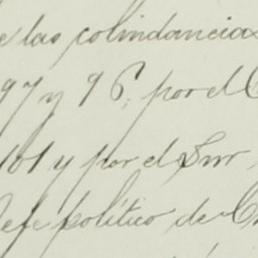 e las colindancias
97 y 96; por el C
101 y por el Sur
Jefe político de Ch